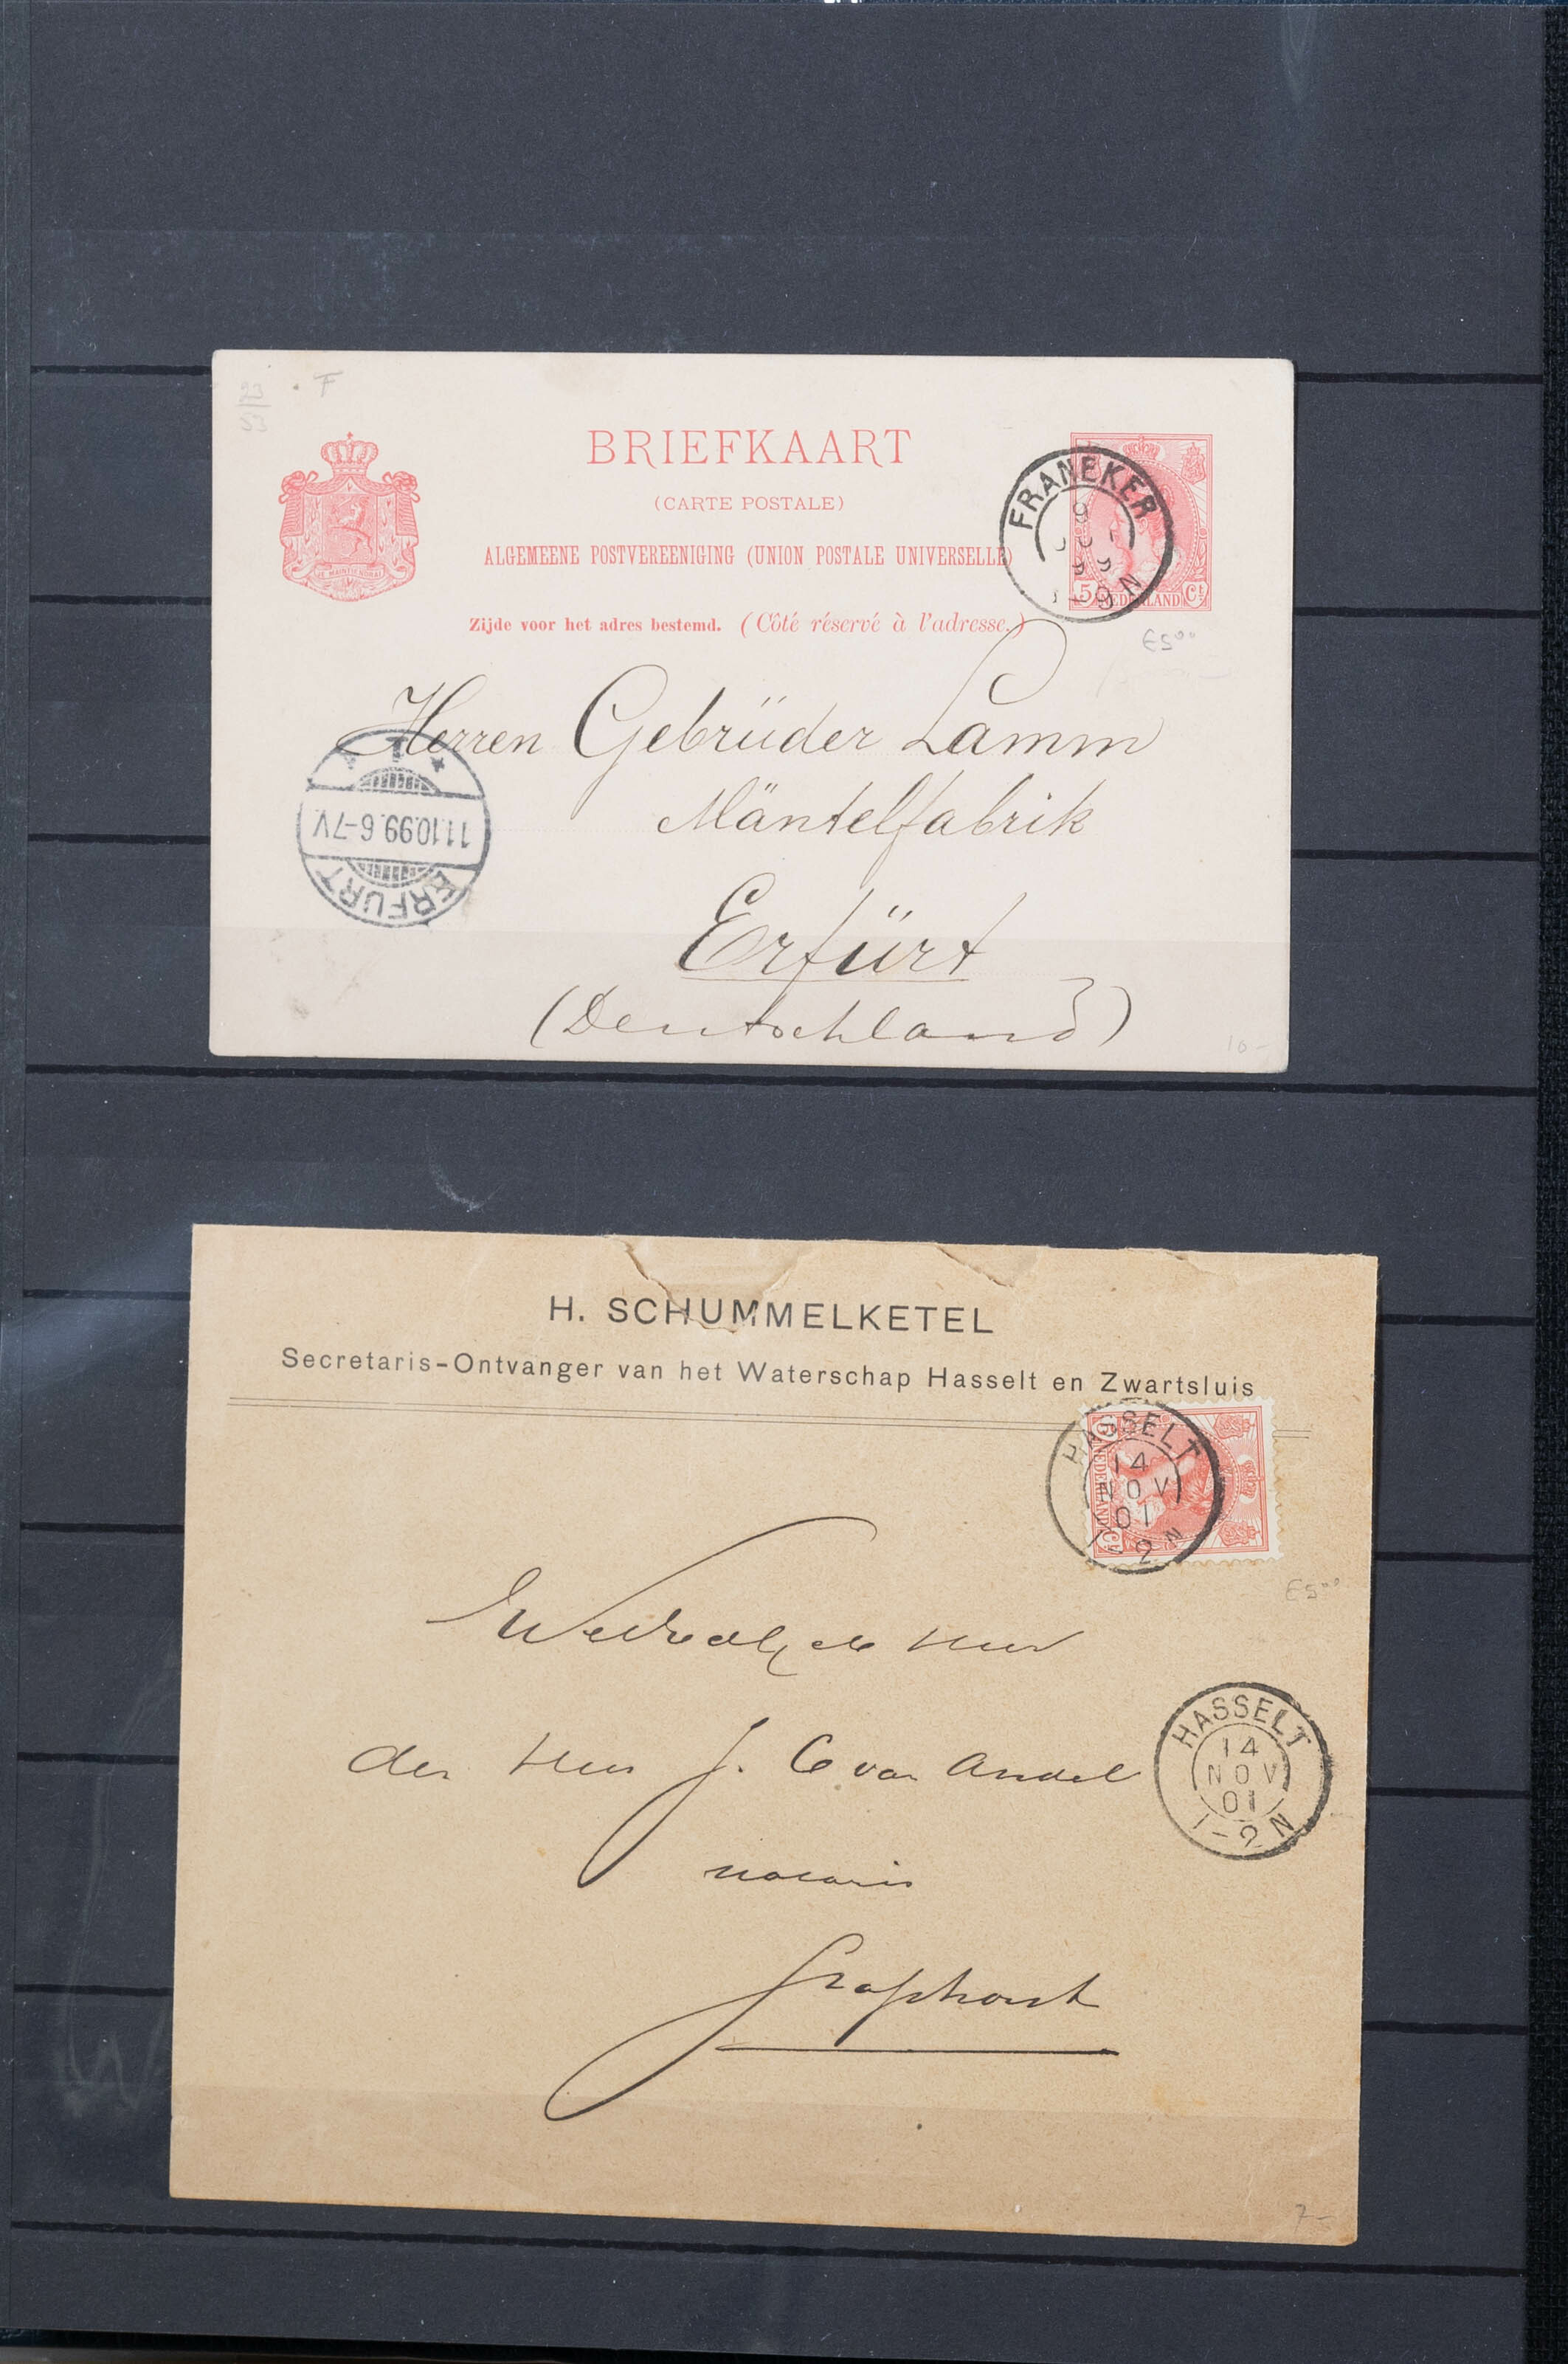 23
53
F
BRIEFKAART
(CARTE POSTALE)
ALGEMEENE POSTVEREENIGING (UNION POSTALE UNIVERSELLE)
Zijde voor het adres bestemd. (Côté réservé à l'adresse.)
JE MAINTIENDRAI
FRANEKER
9
99
5 NEDERLAND Ct
€5⁰⁰
Herren Gebrüder Lamm
Mäntelfabrik
Erfürt
(Deutschland)
ERFURT
11.10.99.6-7V.
* 1
10-
H. SCHUMMELKETEL
Secretaris-Ontvanger van het Waterschap Hasselt en Zwartsluis
HASSELT
14
NOV
01
1-2N
NEDERLAND
€5⁰⁰
den Heer J. C van Andel
notaris
HASSELT
14
NOV
01
1-2N
7-